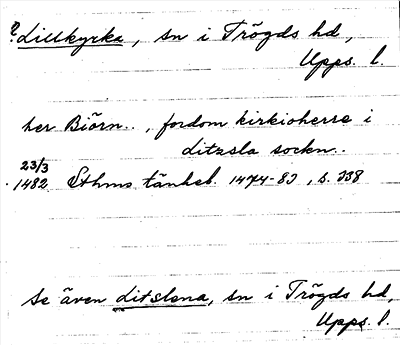 ?Lillkyrka, sn i Trögds hd,
Upps. l.
her Biörn.. , fordom kirkioherre i
litzsla sockn..
23/3
1482 Sthms tänkeb. 1474-83, s. 338
Se även Litslena, sn i Trögds hd,
Upps. l.